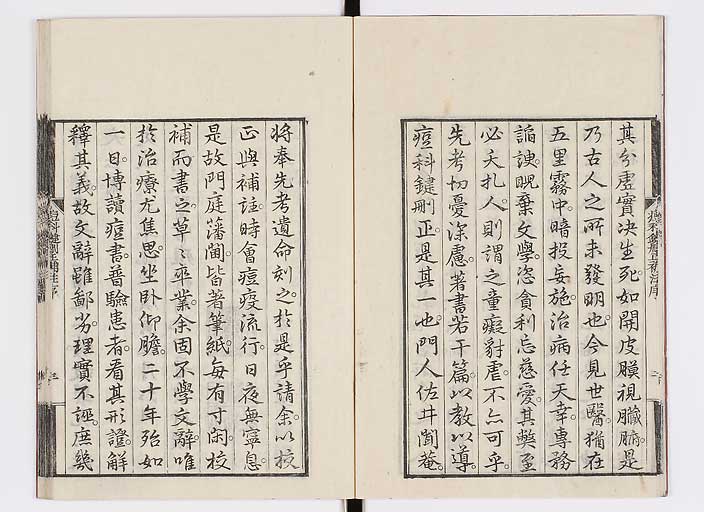 其分虛實決生死如開皮膜視臟腑是
乃古人之所未發明也今見世醫猶在
五里霧中暗投妄施治病任天幸專務
諂諛睨棄文學恣貪利忘慈愛其弊至
必夭扎人則謂之童癡豺虐不亦可乎
先考切憂深慮著書若干篇以教以導
痘科鍵刪正是其一也門人佐井聞菴
將奉先考遺命刻之於是乎請余以校
正與補註時會痘疫流行日夜無寧息
是故門庭藩閫皆著筆紙每有寸閑校
補而書之草〻卒業余固不學文辭唯
於治療尤焦思坐臥仰膽二十年殆如
一日博讀痘書普驗患者看其形證解
釋其義故文辭雖鄙劣理實不誣庶幾